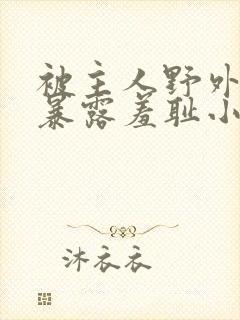 被主人野外
暴露羞耻小
沐衣衣